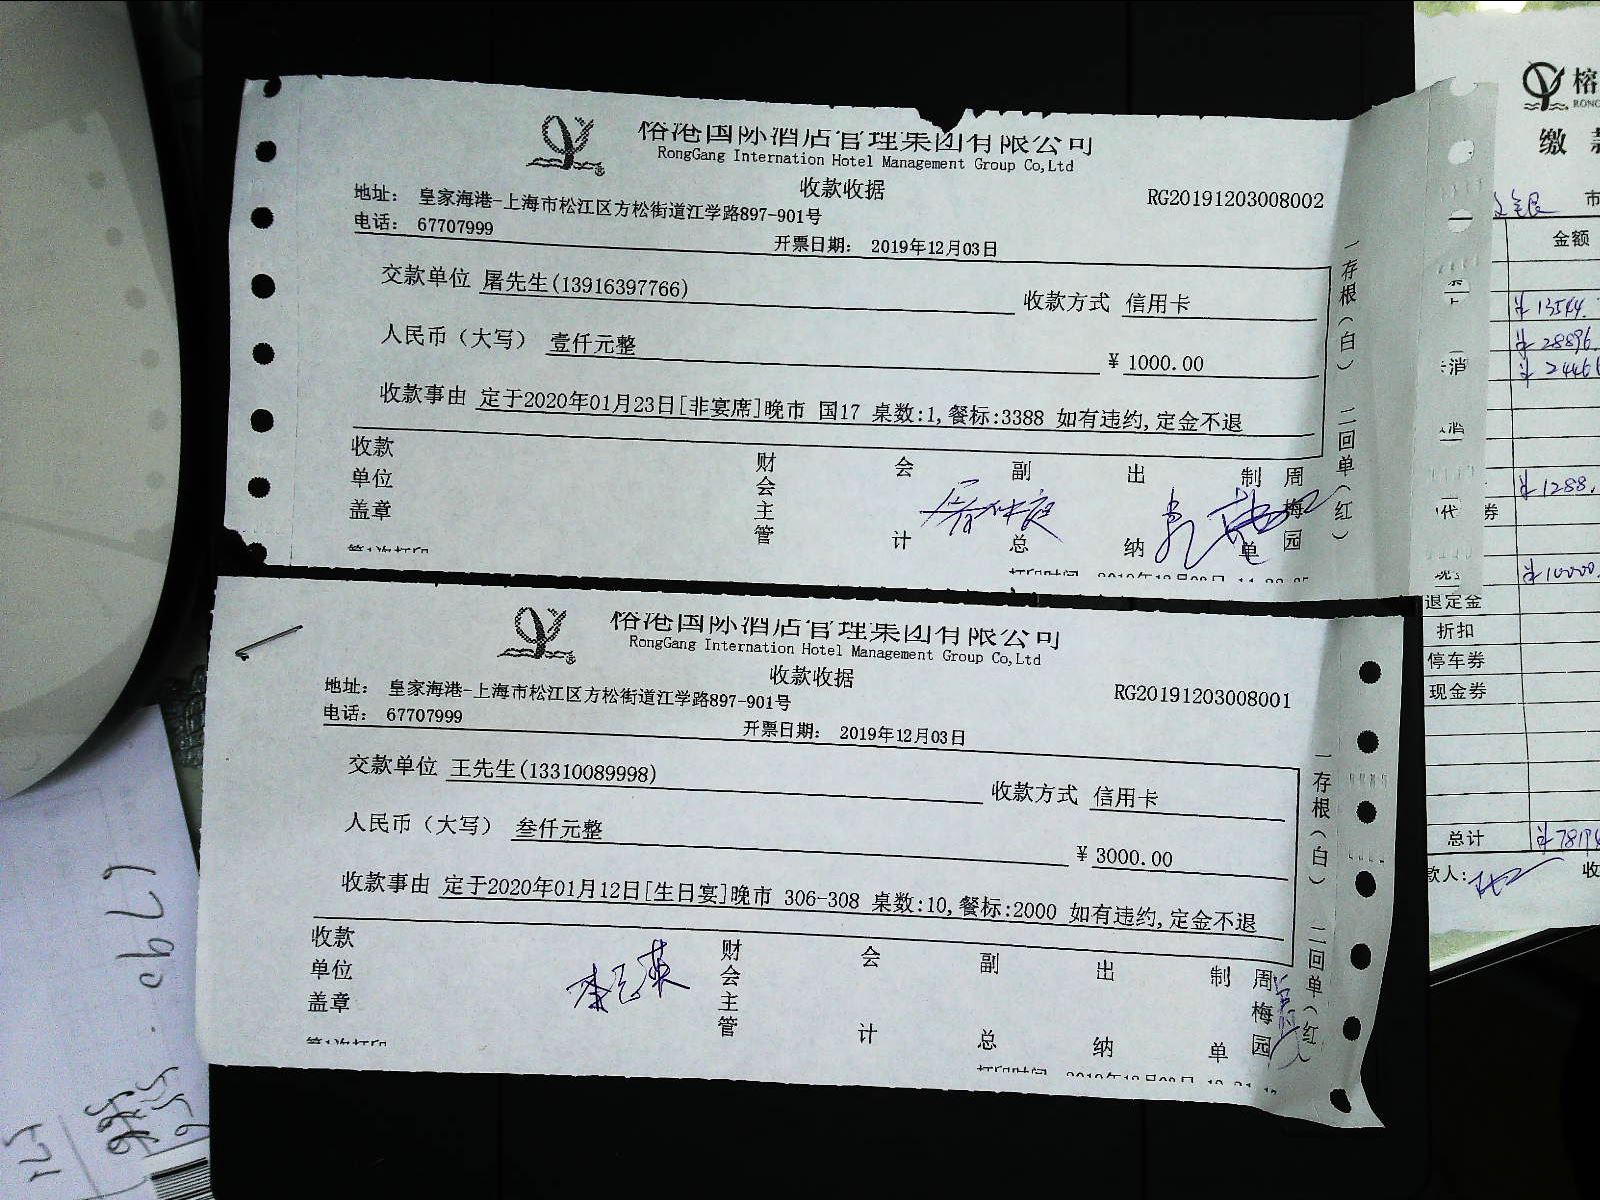 榕港国际酒店管理集团有限公司
RongGang Internation Hotel Management Group Co,Ltd
收款收据
地址： 皇家海港-上海市松江区方松街道江学路897-901号
RG20191203008002
电话： 67707999
开票日期： 2019年12月03日
交款单位 屠先生(13916397766)
收款方式 信用卡
人民币（大写） 壹仟元整
¥ 1000.00
收款事由 定于2020年01月23日[非宴席]晚市 国17 桌数:1,餐标:3388 如有违约,定金不退
收款单位盖章
财会主管
会计
副总
出纳
制单
周梅园
一存根（白） 二回单（红）
第1次打印
榕港国际酒店管理集团有限公司
RongGang Internation Hotel Management Group Co,Ltd
收款收据
地址： 皇家海港-上海市松江区方松街道江学路897-901号
RG20191203008001
电话： 67707999
开票日期： 2019年12月03日
交款单位 王先生(13310089998)
收款方式 信用卡
人民币（大写） 叁仟元整
¥ 3000.00
收款事由 定于2020年01月12日[生日宴]晚市 306-308 桌数:10,餐标:2000 如有违约,定金不退
收款单位盖章
财会主管
会计
副总
出纳
制单
周梅园
一存根（白） 二回单（红）
第1次打印
榕
RONG
缴
市
金额
¥13544.
¥28896.
¥1288.
券
¥10000.
退定金
折扣
停车券
现金券
总计
款人:
收
1790.